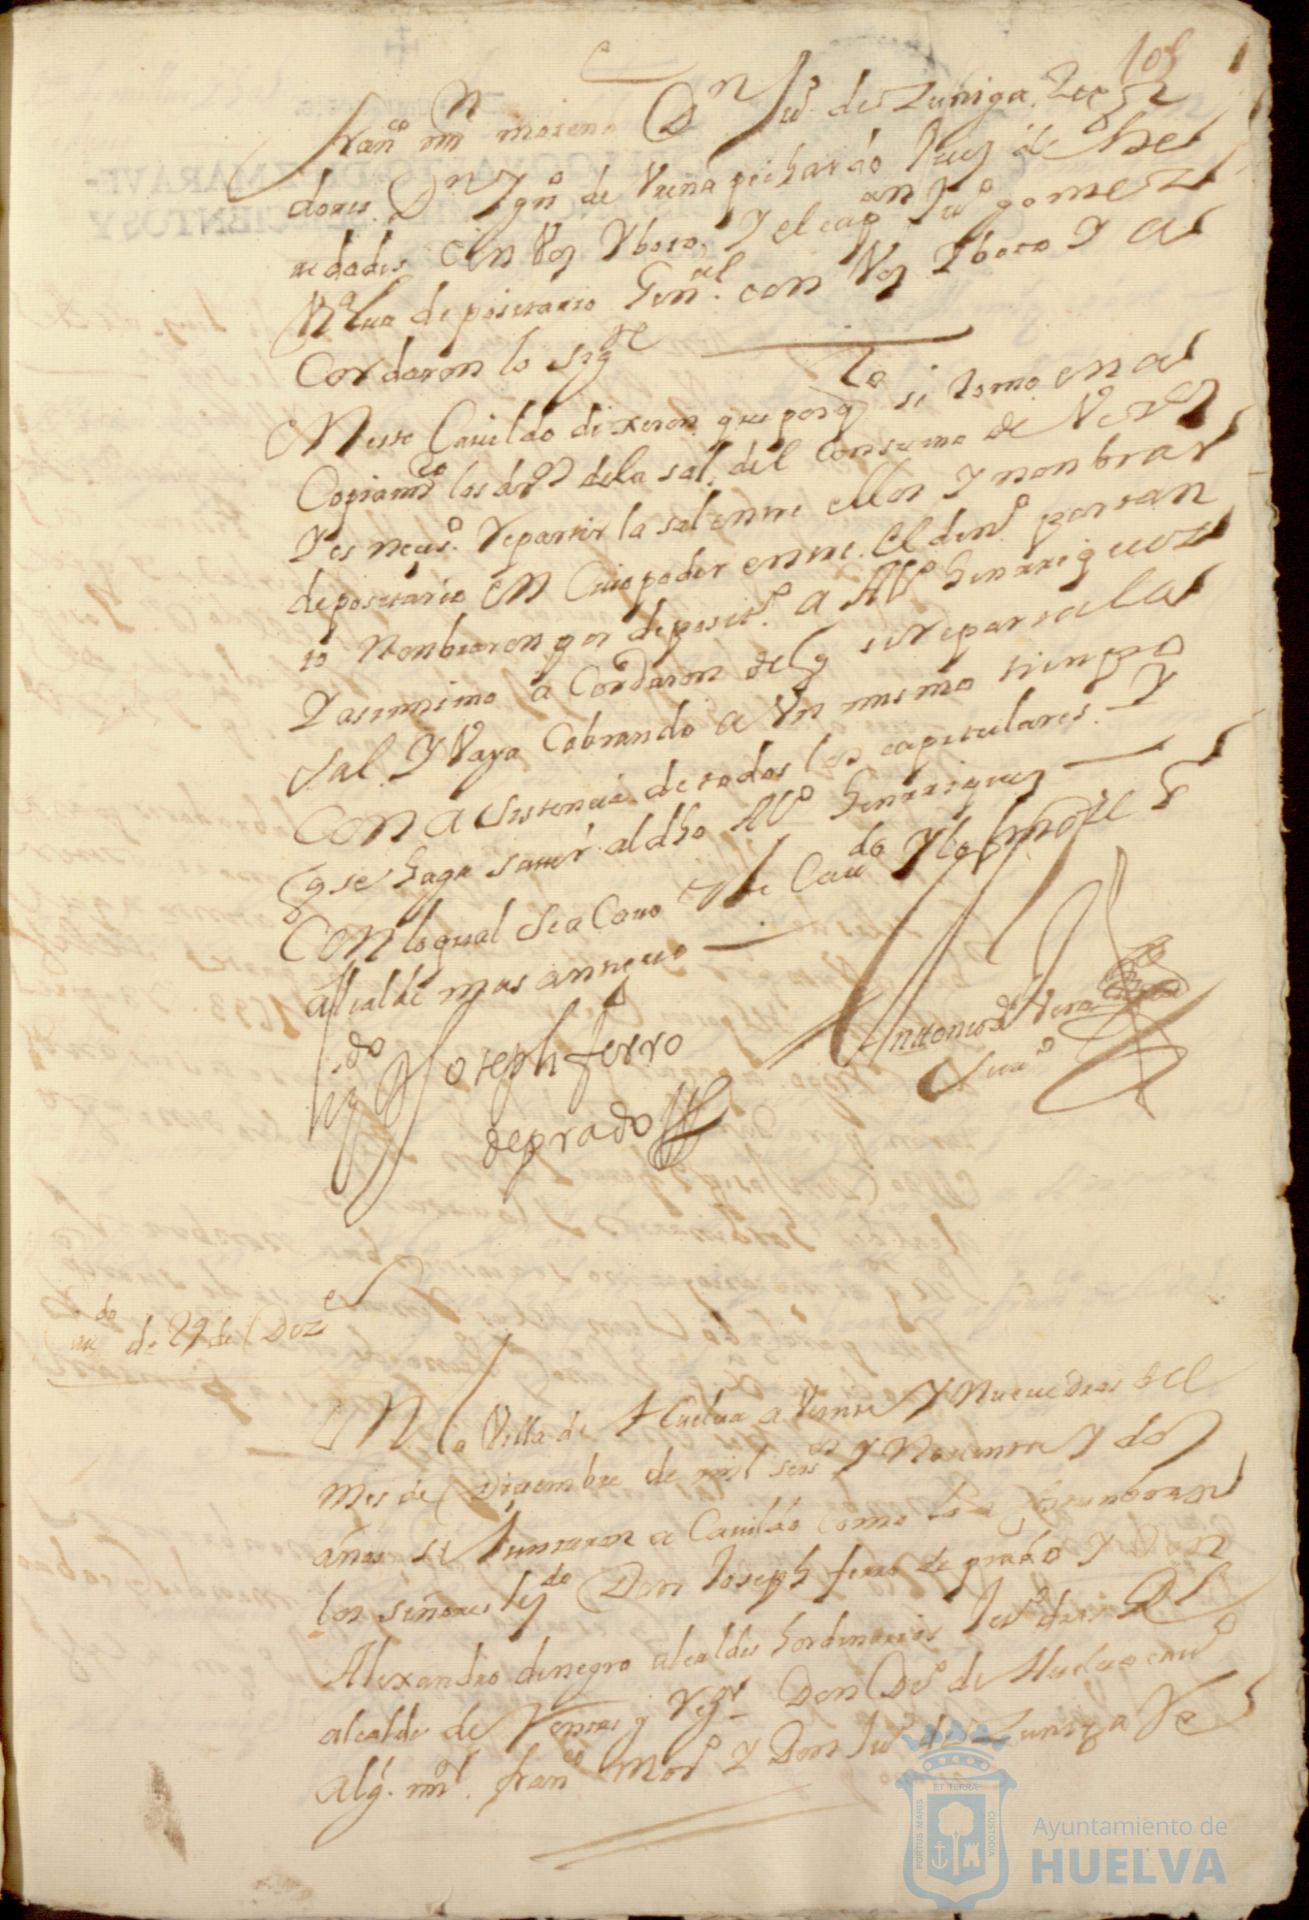 108
fran^co mrn moreno Dn Ju^o de Zuñiga Reg^or
dores. Dn Ygn^o de Ureña pichardo Juez de Here
dades sin Voz Y boto, Y el cap^an Ju^o gomez
depositario Gen^al. con Voz Y boto Y a
Cordaron lo sig^te
En este Cauildo dixeron que por q^to si tomo en a
Copiam^to los dr^os de la sal, del consumo de
Y es neces^o. Repartir la sal entre ellos Y nonbrar
depositario en Cuio poder entre. el din^o por tan
to Nonbraron por deposit^o. a Al^o henrriquez
Y asimismo a Cordaron de q se reparta la
sal Y Vaya Cobrando a Un mismo tienpo
con asistencia de todos los capitulares. Y
q se haga sauer al dho Al^o henrriquez
Con lo qual se acauo este Cau^do Y lo firmo el
alcalde mas antiguo
Liz^do D Joseph ferro
de prado
Antonio de Vera
Scriu^o
Cau^do de 29 de Diz^e
En la Villa de Huelua a Veinte Y Nueue dias del
Mes de Diziembre de mil seis^os Y Nouenta Y dos
años se Juntaron a Cauildo como lo a Costunbran
los señores liz^do Don Joseph ferro de prado Y Don
Alexandro de negro alcaldes hordinarios Ju^o
alcalde de Y Reg^or Don Di^o de Huelua
alg. m^r. fran^co Mor^o Y Don Ju^o de Zuniga Re
PORTUS MARIS
ET TERRAE
CUSTODIA
Ayuntamiento de
HUELVA